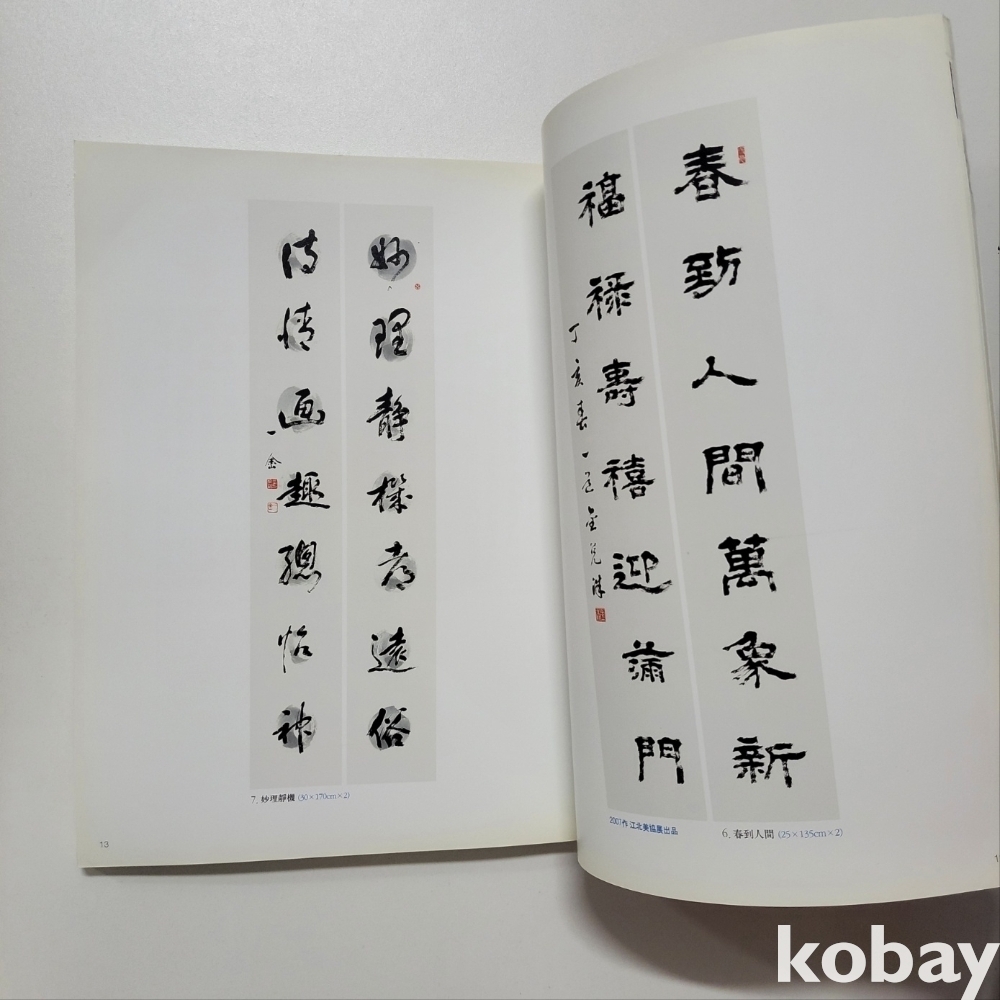 春到人間萬象新
福祿壽禧迎滿門
丁亥春
2007作 江北美協展出品
6. 春到人間 (25×135cm×2)
妙理靜機都遠俗
詩情画趣總怡神
7. 妙理靜機 (30×170cm×2)
13
kobay